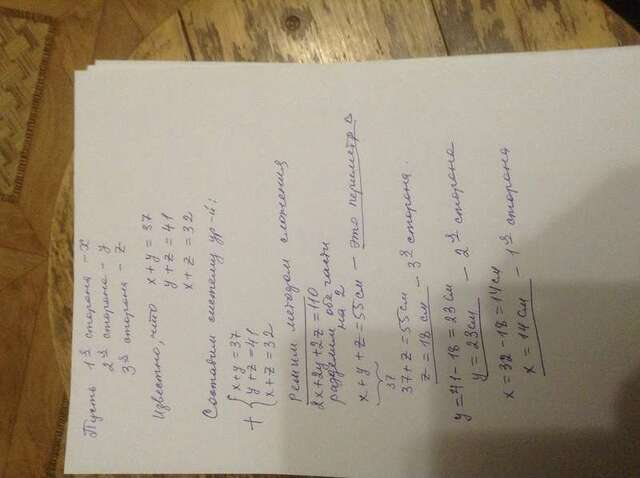 Пусть 1я сторона – x
2я сторона – y
3я сторона – z
Известно, что x + y = 37
y + z = 41
x + z = 32
Составим систему ур-й:
+ { x + y = 37
y + z = 41
x + z = 32
Решим методом сложения
2x + 2y + 2z = 110
разделим обе части
на 2
x + y + z = 55 см – это периметр
37
37 + z = 55 см
z = 18 см – 3я сторона.
y = 41 – 18 = 23 см
y = 23 см – 2я сторона
x = 32 – 18 = 14 см
x = 14 см – 1я сторона